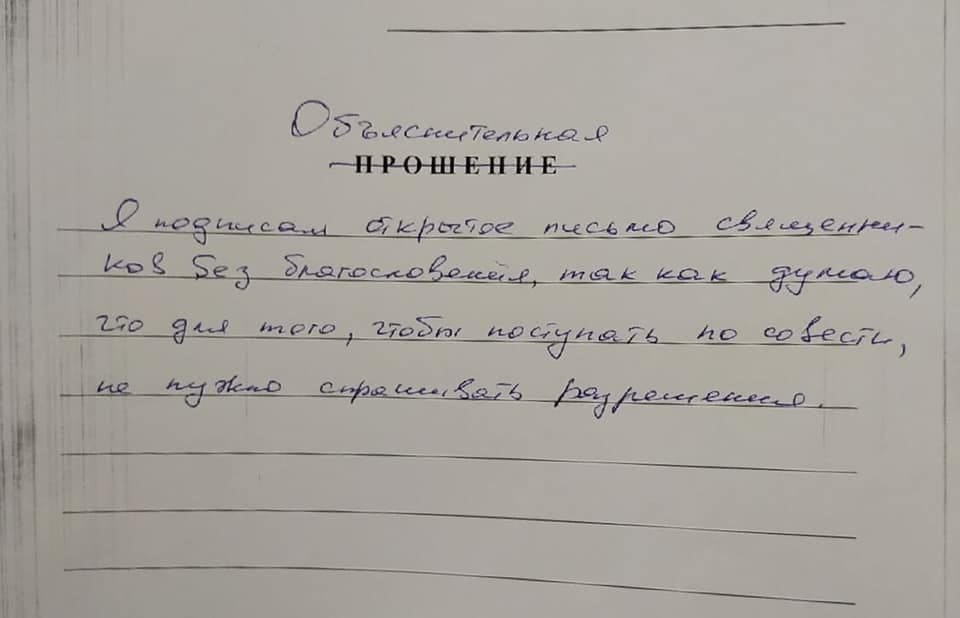 Объяснительная
ПРОШЕНИЕ
Я подписал открытое письмо священни-
ков без благословения, так как думаю,
что для того, чтобы поступать по совести,
не нужно спрашивать разрешения.